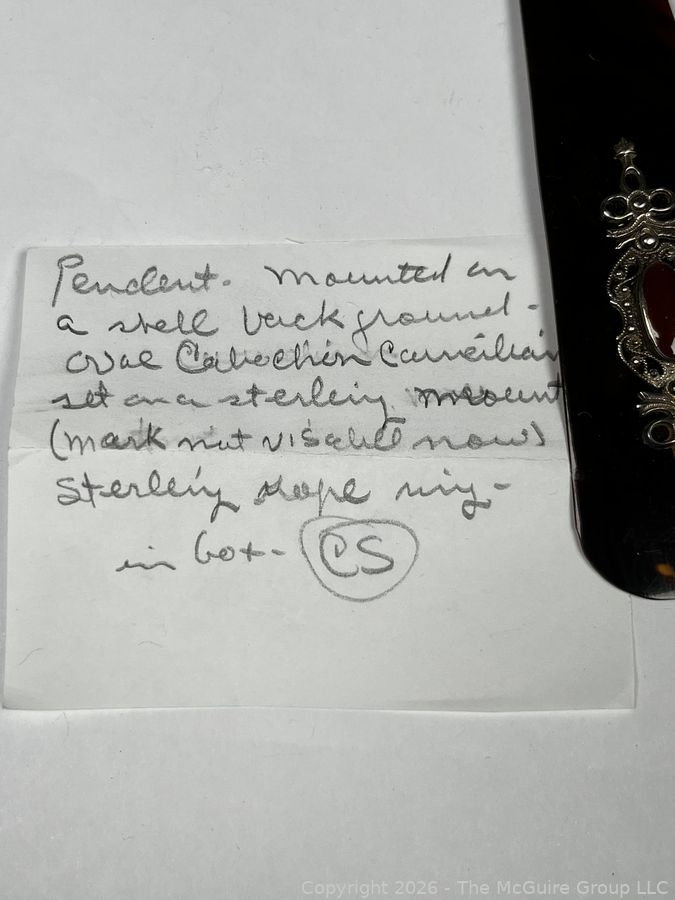 Pendent. Mounted on
a shell background.
oval Cabochin Carneilian
set on a sterling mount
(mark not visable now)
Sterling rope ring -
in box - CS
Copyright 2026 - The McGuire Group LLC